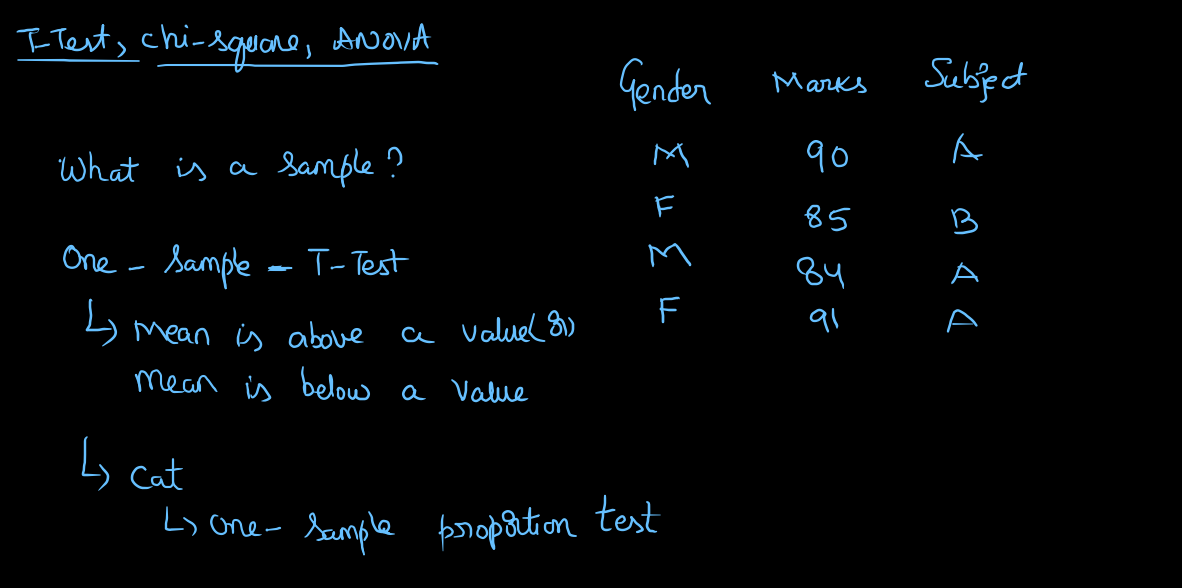 T-Test, chi-square, ANOVA
What is a sample?
One - Sample - T-Test
↳ Mean is above a value(or)
Mean is below a value
↳ Cat
↳ One- Sample proportion test
Gender Marks Subject
M 90 A
F 85 B
M 84 A
F 91 A